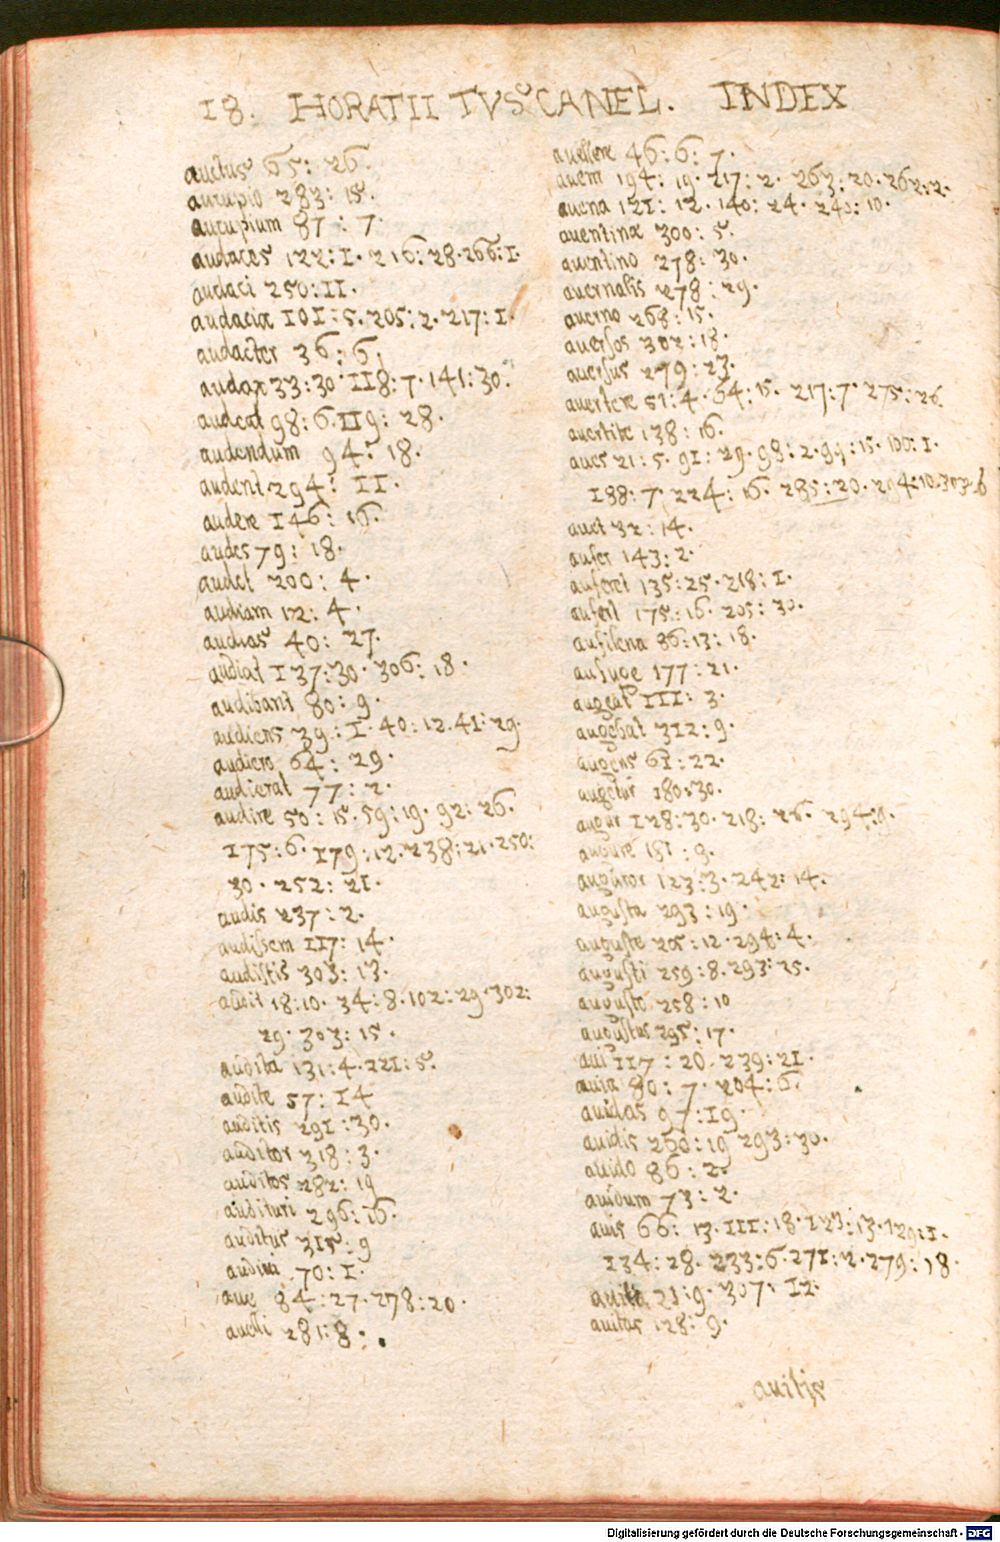 18. HORATII TVSCANEL. INDEX
auctus 65: 26.
aucupio 283: 15.
aucupium 87: 7
audaces 122: I. 216: 28. 266: I.
audaci 250: II.
audaciæ I0I: 5. 205: 2. 217: I.
audacter 36: 6.
audax 33: 30. II8: 7. 141: 30.
audeat 98: 6. II9: 28.
audendum 94: 18.
audent 294: II.
audere I46: 16.
audes 79: 18.
audet 200: 4.
audiam 172: 4.
audias 40: 27.
audiat I37: 30. 306: 18.
audibant 80: 9.
audiens 39: I. 40: 12. 41: 29.
audiero 64: 29.
audierat 77: 2.
audire 50: 15. 59: 19. 92: 26.
I75: 6. I79: 12. 238: 21. 250:
30. 252: 21.
audis 237: 2.
audissem II7: 14.
audistis 303: 13.
audit 18: 10. 34: 8. 102: 29. 302:
29. 303: 15.
audita 131: 4. 221: 5.
audite 57: I4
auditis 291: 30.
auditor 318: 3.
auditos 282: 19
audituri 296: 16.
auditus 315: 9
audiui 70: I.
aue 84: 27. 278: 20.
auelli 281: 8.
auellere 46: 6: 7.
auem 194: 19. 217: 2. 263: 20. 262: 2.
auena 121: 12. 140: 24. 240: 10.
auentinæ 300: 5.
auentino 278: 30.
auernalis 278: 29.
auerno 268: 15.
auersos 302: 18.
auersus 279: 23.
auertere 51: 4. 64: 15. 217: 7. 275: 26.
auertite 138: 16.
aues 21: 5. 91: 29. 98: 2. 99: 15. 100: I.
188: 7. 224: 16. 285: 20. 294: 10. 303. 6
auet 32: 14.
aufer 143: 2.
auferet 135: 25. 218: I.
aufert 175: 16. 205: 30.
aufilena 86: 13: 18.
aufuge 177: 21.
augeat III: 3.
augebat 312: 9.
augens 61: 22.
augetur 180: 30.
augur I28: 30. 218: 26. 294: 9.
augure 181: 9.
auguror 123: 3. 242: 14.
augusta 293: 19.
auguste 205: 12. 294: 4.
augusti 259: 8. 293: 25.
augusto 258: 10
augustus 295: 17.
aui II7: 20. 239: 2I.
auia 80: 7. 204: 6.
auidas 97: I9.
auidis 260: 19 293: 30.
auido 86: 2.
auidum 73: 2.
auis 66: 13. III: 18. 123: 13. 129: I.
I34: 28. 233: 6. 271: 2. 279: 18.
auita 21: 9. 307: I2.
auitas 128: 9.
auitis
Digitalisierung gefördert durch die Deutsche Forschungsgemeinschaft - DFG